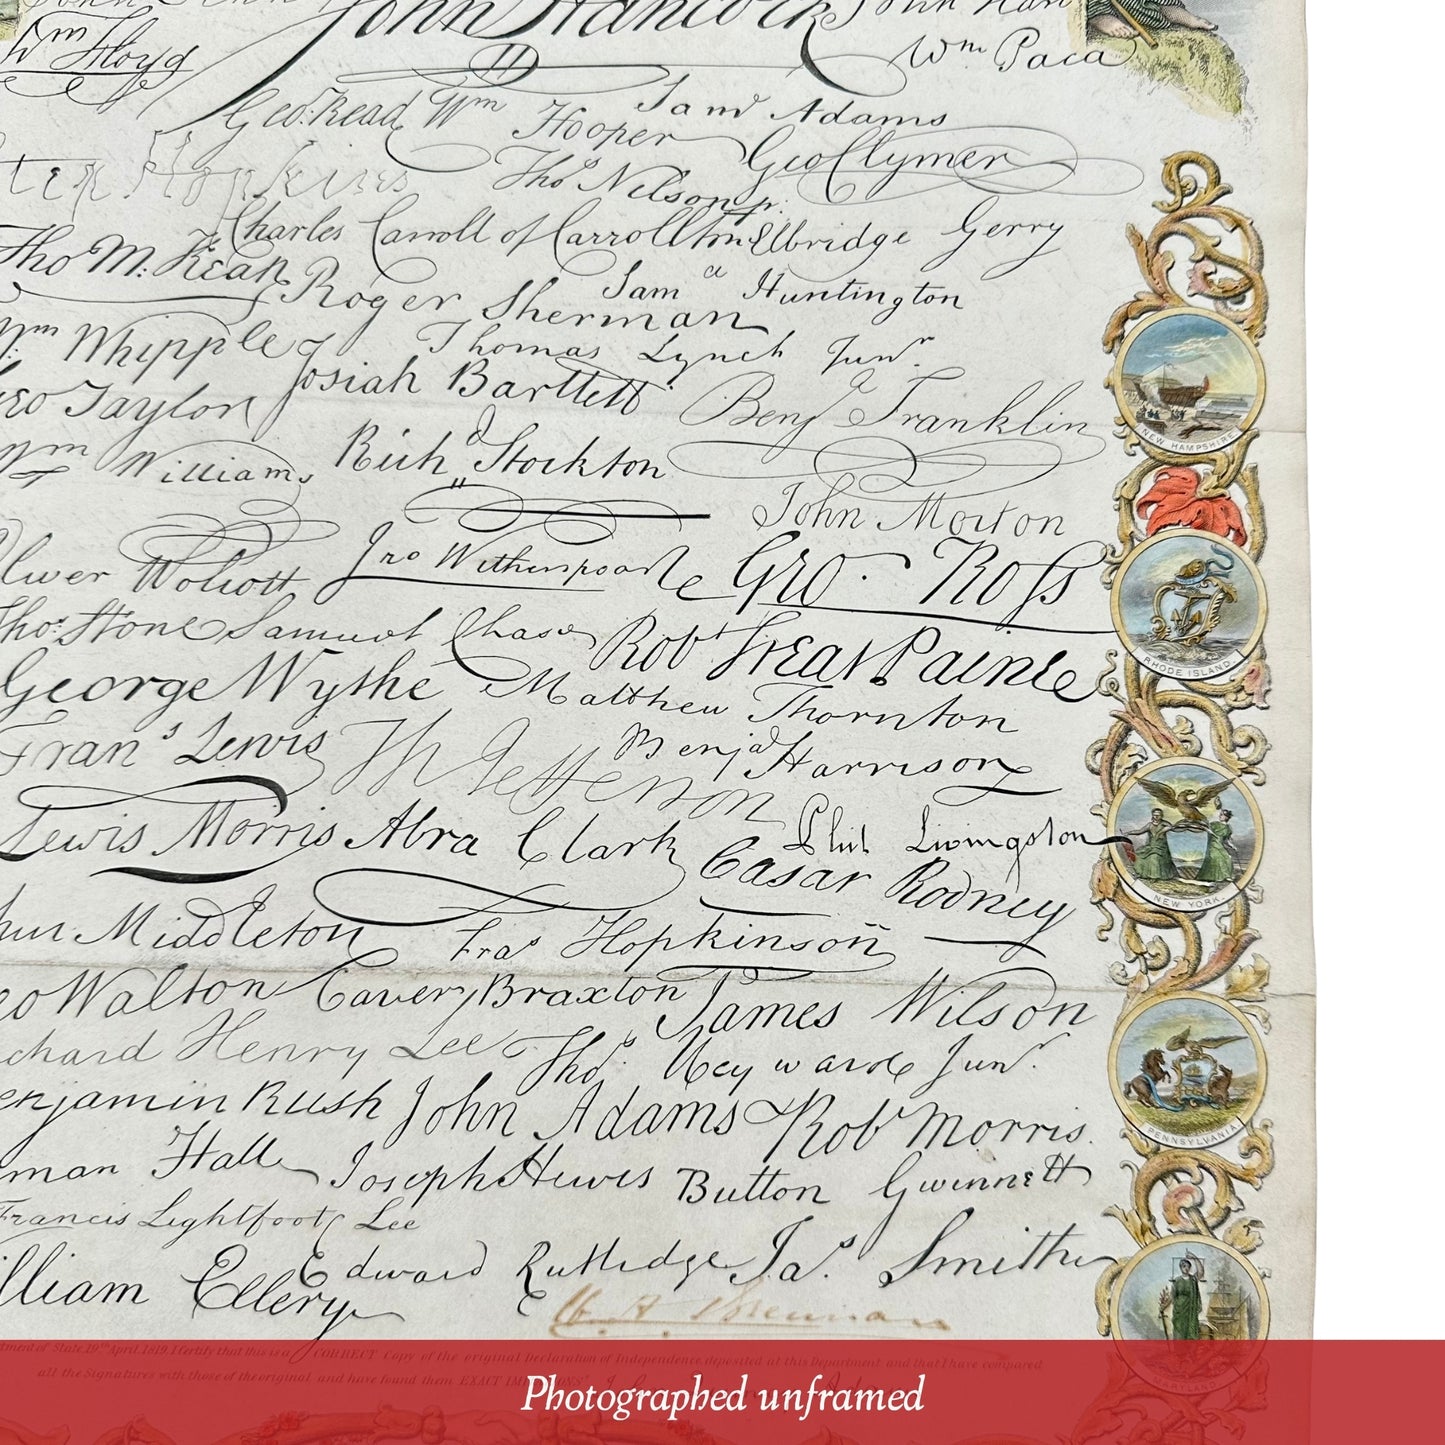 John Hancock
Wm Floyd
Wm Paca
Geo: Read Wm Hooper Saml Adams
Geo Clymer
Hopkins Thos Nelson jr.
Charles Carroll of Carrollton Elbridge Gerry
Tho M: Kean Roger Sherman Saml Huntington
Wm Whipple Thomas Lynch Junr.
Geo Taylor Josiah Bartlett Benja Franklin
NEW HAMPSHIRE
Wm Williams Richd Stockton
John Morton
Oliver Wolcott Jno Witherspoon Geo. Ross
Thos. Stone Samuel Chase Robt Treat Paine
RHODE ISLAND
George Wythe Matthew Thornton
Frans Lewis Th Jefferson Benja Harrison
Lewis Morris Abra Clark Phil. Livingston
Cæsar Rodney
NEW YORK
Middleton Fras Hopkinson
Walton Carter Braxton James Wilson
Richard Henry Lee Thos. Heyward Junr.
Benjamin Rush John Adams Robt Morris
PENNSYLVANIA
Hall Joseph Hewes Button Gwinnett
Francis Lightfoot Lee
William Ellery Edward Rutledge Jas. Smith
of State 19th April 1819 I Certify that this is a CORRECT Copy of the original Declaration of Independence deposited at this Department and that I have compared
all the Signatures with those of the original and have found them EXACT
MARYLAND
Photographed unframed